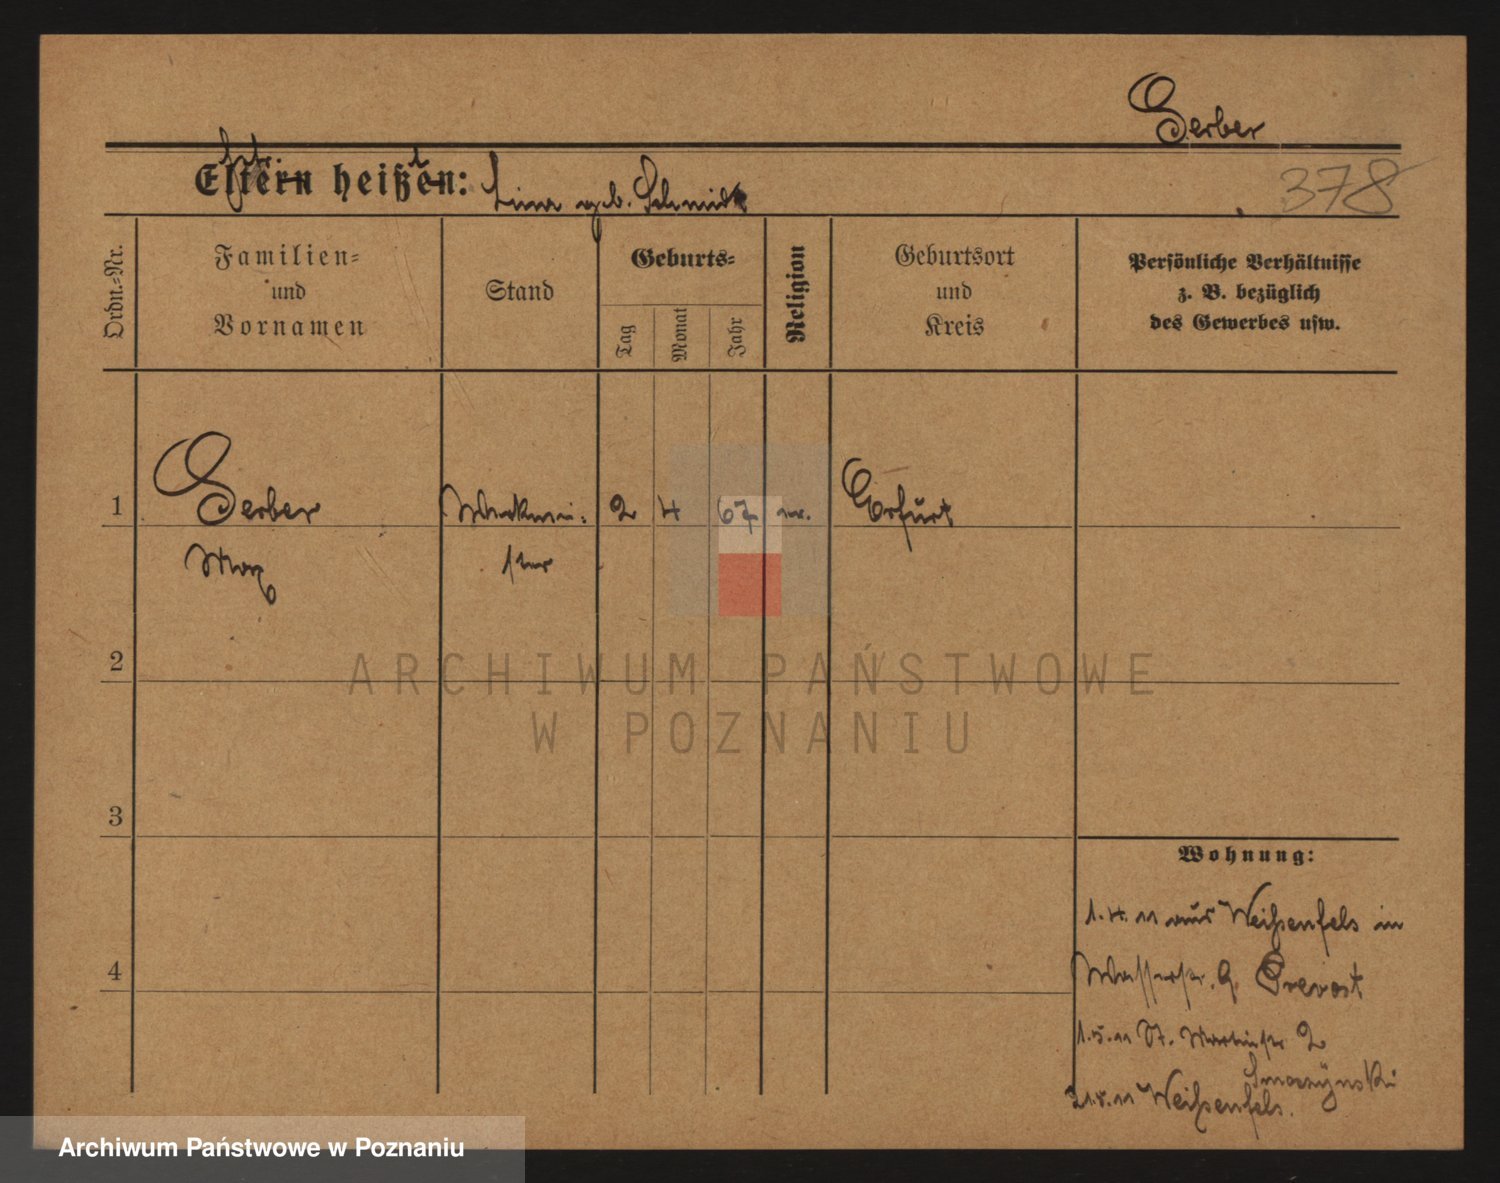 Gerber
Eltern heißen: Lina geb. Schmidt
378
Ordn.-Nr.
Familien-
und
Vornamen
Stand
Geburts-
Tag
Monat
Jahr
Religion
Geburtsort
und
Kreis
Persönliche Verhältnisse
z. B. bezüglich
des Gewerbes usw.
1 Gerber Werkmei- 2 4 67 ev. Erfurt
Max ster
2
3
4
ARCHIWUM PAŃSTWOWE
W POZNANIU
Wohnung:
1.4.11 aus Weißenfels in
Wasserstr. 9. Prevost
1.5.11 St. Martinstr 2
Smoczynski
21.5.11 Weißenfels.
Archiwum Państwowe w Poznaniu